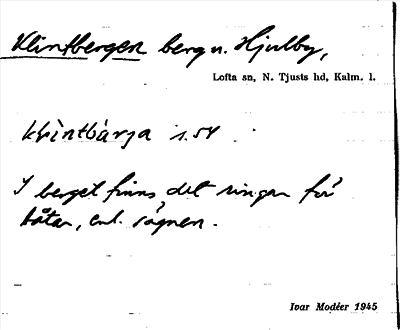 Klintbergen berg n. Hjulby,
Lofta sn, N. Tjusts hd, Kalm. l.
klìntbàrja s. 54
I berget finns det ringar för
båtar, enl. sägnen.
Ivar Modéer 1945